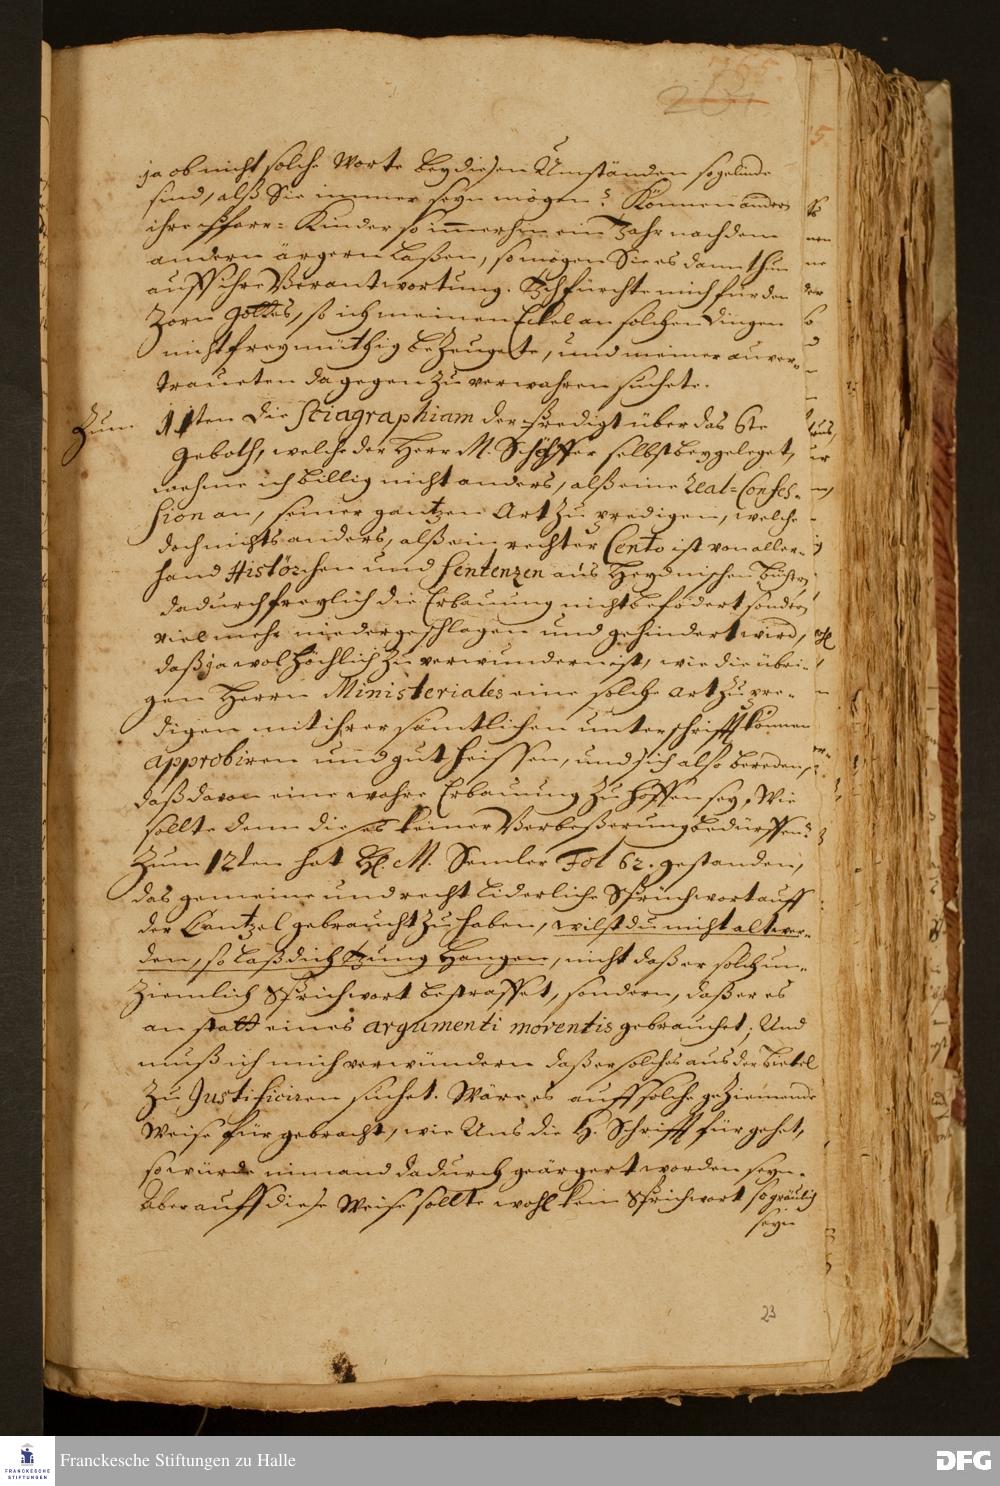 765.
ja ob nicht solche Worte bey diesen Umständen so gelinde
sind, alß Sie immer seyn mögen? Können andere
ihre Pfarr-Kinder so immerhin ein Jahr nach dem
andern ärgern laßen, so mögen Sie es dann thun
auff ihre Verantwortung. Ich fürchte mich für den
Zorn Gottes, so ich meinen Eckel an solchen Dingen
nicht freymüthig bezeugete, und meine anver-
traueten dagegen zu verwahren suchete.
Zum 11ten Die Sciagraphiam der Predigt über das 6te
Geboth, welche der Herr M. Schäffer selbst beygeleget,
nehme ich billig nicht anders, alß eine Real-Confes-
sion an, seiner gantzen Art zu predigen, welche
doch nichts anders, alß ein rechter Cento ist von aller-
hand Histörchen und Sentenzen aus Heydnischen Büchern,
dadurch freylich die Erbauung nicht befödert sondern
vielmehr niedergeschlagen und gehindert wird,
daß ja wol höchlich zu verwundern ist, wie die übri-
gen Herrn Ministeriales eine solche Art zu pre-
digen mit ihrer sämtlichen unterschrifft können
approbiren und gut heissen, und sich also bereden,
daß davon eine wahre Erbauung zu hoffen sey, Wie
sollte denn dieses keiner Verbeßerung bedürffen?
Zum 12ten hat H. M. Semler Fol 62. gestanden,
das gemeine und recht liderliche Sprüchwort auff
der Cantzel gebraucht zu haben, wilst du nicht alt wer-
den, so laß dich Jung Hangen, nicht daß er solch un-
ziemlich Sprichwort bestraffet, sondern, daß er es
an statt eines argumenti moventis gebrauchet; Und
muß ich mich verwundern daß er solches aus der Bibel
zu Justificiren suchet. Wäre es auff solche geziemende
Weise fürgebracht, wie Uns die H. Schrifft fürgehet,
so würde niemand dadurch geärgert worden seyn.
Aber auff diese Weise sollte wohl kein Sprichwort so gräulich
seyn
23
Franckesche Stiftungen zu Halle
DFG
FRANCKESCHE
STIFTUNGEN